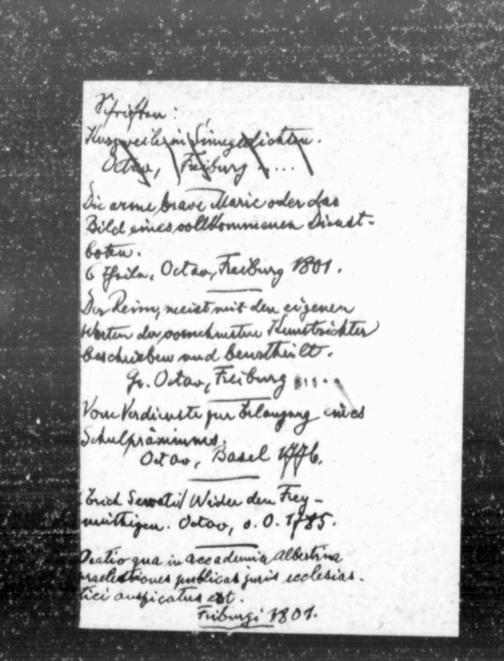 Schriften:
in Sinngedichten.
Octav, Freiburg ....
Die arme brave Marie oder das
Bild eines vollkommenen Dienst-
boten.
6 Theile, Octav, Freiburg 1801.
Der Reim, meist mit den eigenen
Worten der vornehmsten Kunstrichter
beschrieben und beurtheilt.
Gr. Octav, Freiburg ....
Vom Verdienste zur Erlangung eines
Schulprämiums.
Octav, Basel 1776.
Erich Servati/ Wider den Frey-
müthigen. Octav, o. O. 1785.
Oratio qua in accademia Albertina
praelectiones publicas juris ecclesias-
tici auspicatus est.
Friburgi 1801.